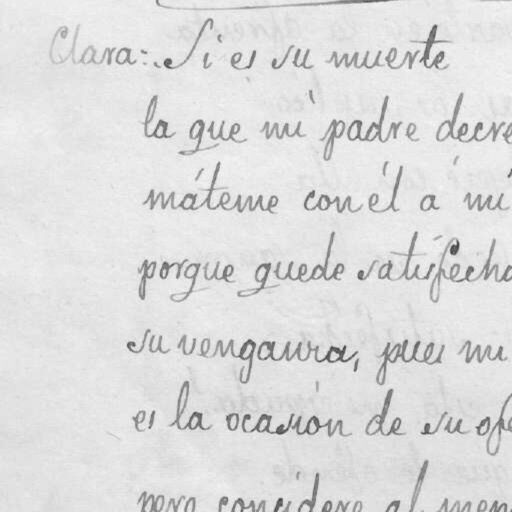 Clara: Si es su muerte
la que mi padre decre
máteme con él a mí
porque quede satisfecha
su venganza, pues mi
es la ocasión de su ofe
pero considere al men